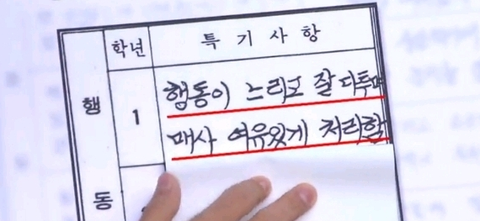 학년 특기사항
행 1 행동이 느리고 잘 다투며
매사 여유있게 처리할
동